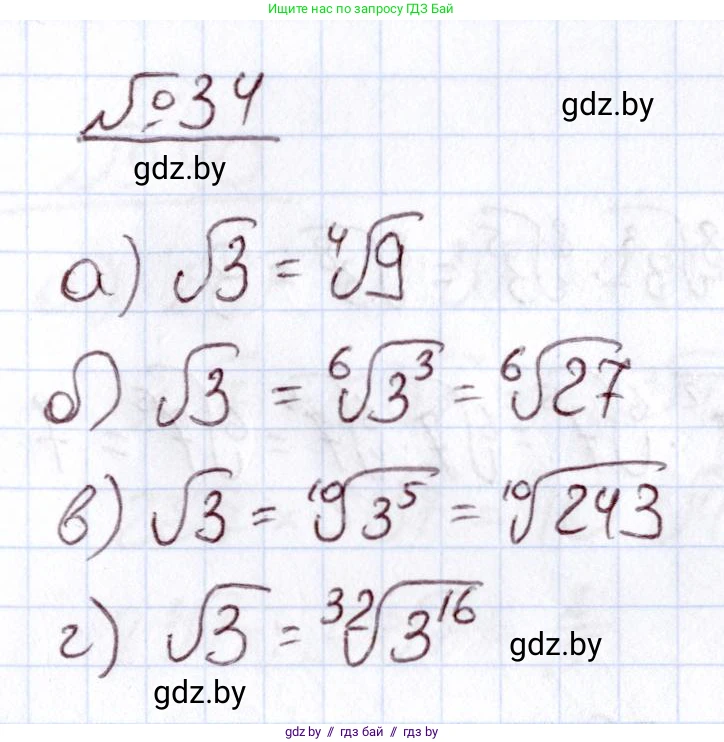 Ищите нас по запросу ГДЗ Бай
№34
gdz.by
gdz.by
а) √3 = ⁴√9
б) √3 = ⁶√3³ = ⁶√27
в) √3 = ¹⁰√3⁵ = ¹⁰√243
г) √3 = ³²√3¹⁶
gdz.by
gdz.by
gdz.by // гдз бай // гдз by